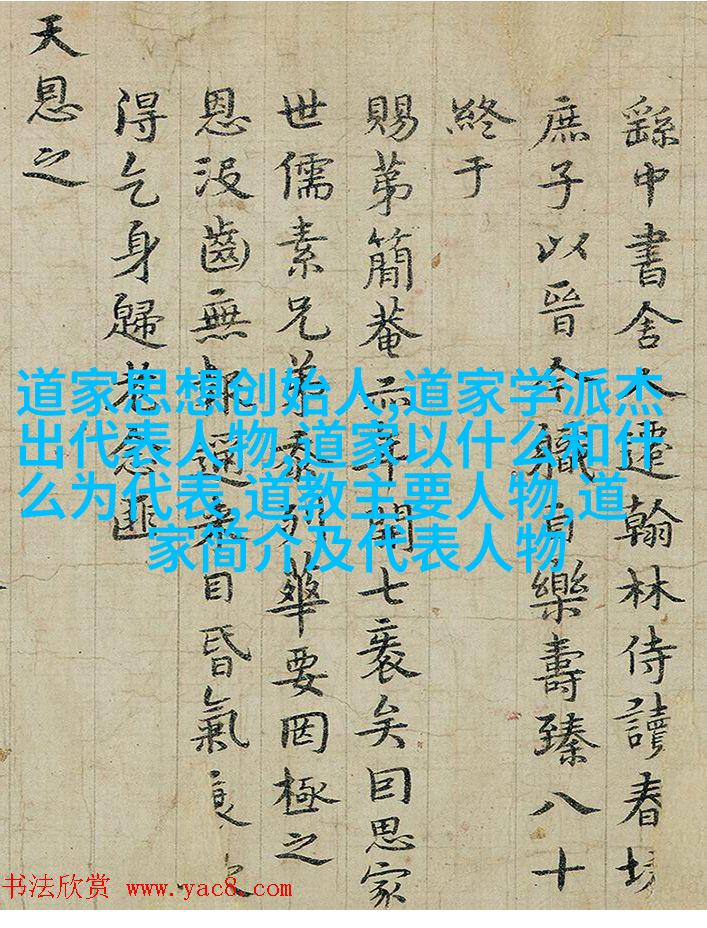 繇中書舍人遷翰林侍讀春坊
庶子以晉今職有樂壽臻八十
終于
賜第簡菴亦年開七袠矣囙思家
世儒素兄弟忝列華要罔極之
恩没齒無報邇來目昏氣衰
得乞身歸老念匪
天恩之
道家思想创始人,道家学派杰
出代表人物,道家以什么和什
么为代表,道教主要人物,道
家简介及代表人物
书法欣赏 www.yac8.com